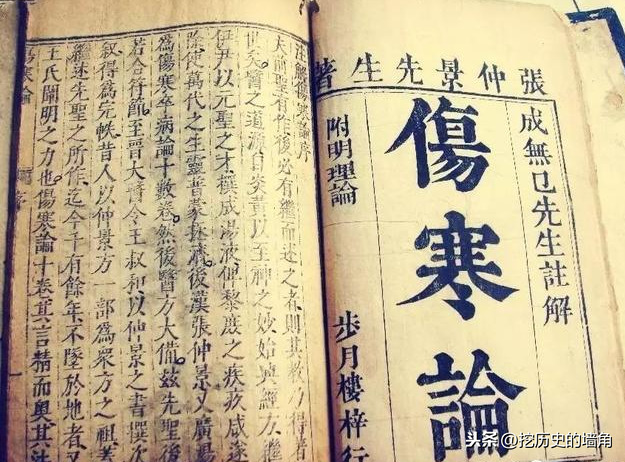 張仲景先生著
成無已先生註解
傷寒論
附明理論
步月樓梓行
註解傷寒論序
夫前聖有作後必有繼而述之者則其教乃得著
世矣醫之道源自炎黃以至神之妙始興經方繼
伊尹以元聖之才撰成湯液俾黎庶之疾疚咸遂
除使萬代之生靈普蒙拯濟後漢張仲景又廣湯
為傷寒卒病論十數卷然後醫方大備茲先聖後
若合符節至晉大醫令王叔和以仲景之書撰次
叙得為完帙昔人以仲景方一部為衆方之祖蓋
繼述先聖之所作迄今千有餘年不墜於地者又
王氏闡明之力也傷寒論十卷其言精而奧其法
傷寒論
头条@挖历史的墙角